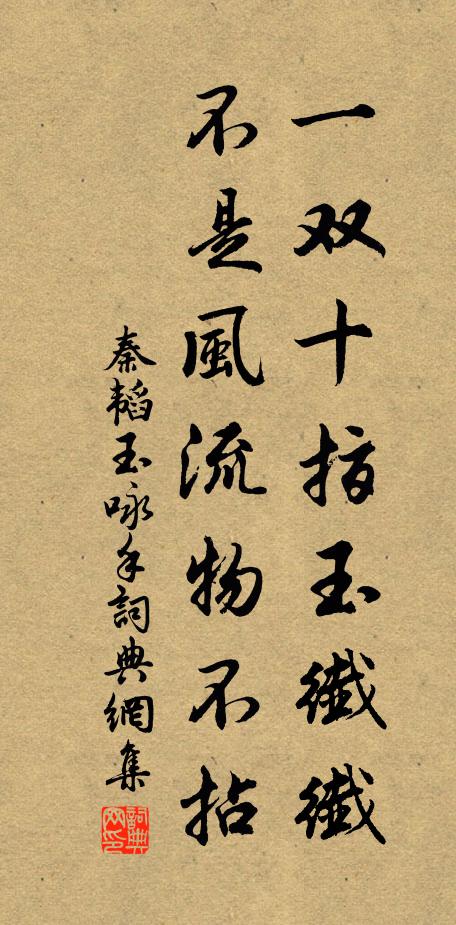 一双十指玉纖纖
不是風流物不拈
秦韜玉咏手詞典網集
詞典網印